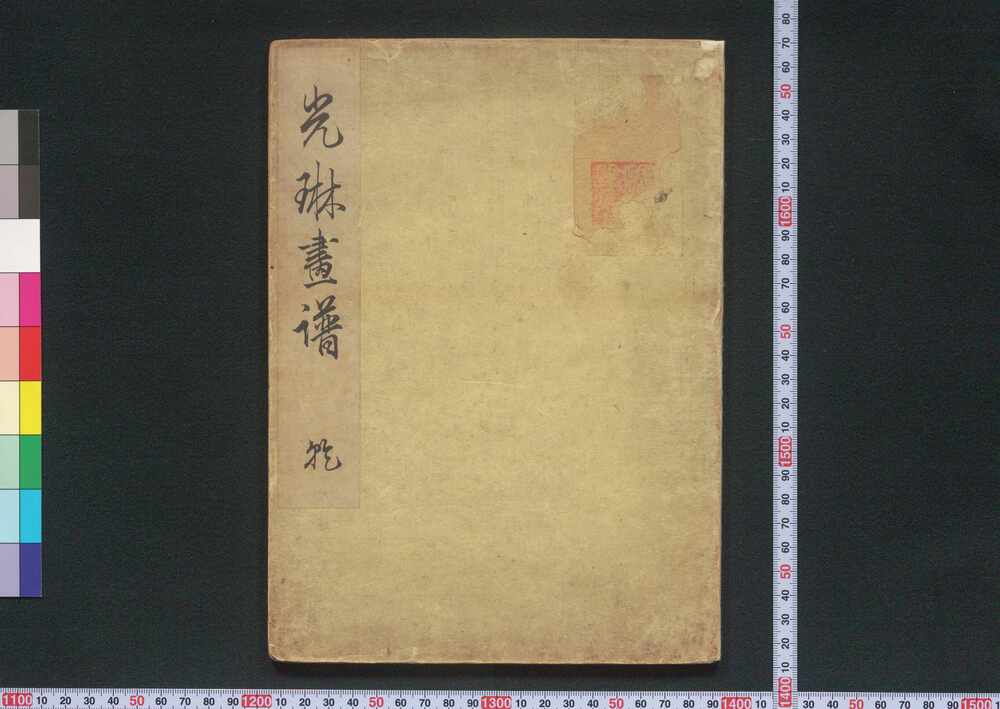 光琳畫譜 乾
80
70
60
50
40
30
20
10
1600
90
80
70
60
50
40
30
20
10
1500
90
80
70
60
50
40
30
20
10
1400
1100 10 20 30 40 50 60 70 80 90 1200 10 20 30 40 50 60 70 80 90 1300 10 20 30 40 50 60 70 80 90 1400 10 20 30 40 50 60 70 80 90 1500